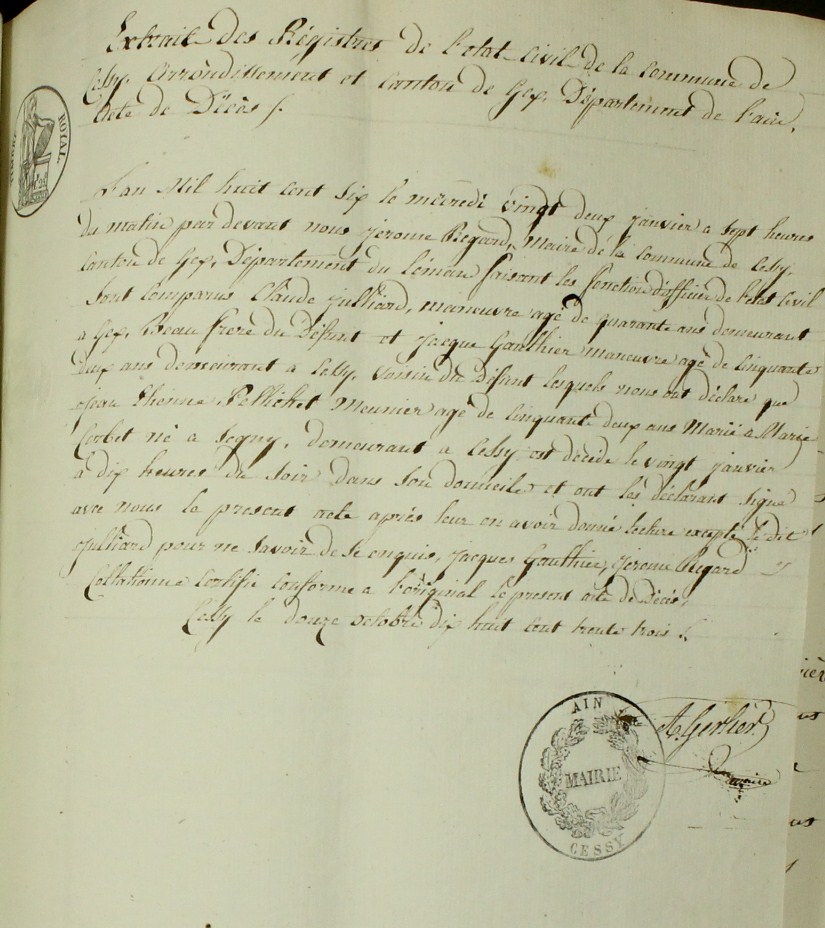 Extrait des Régistres de l'etat Civil de la Commune de
Cessy, Arrondissement et Canton de Gex, Département de l'ain,
Acte de Décès /.
TIMBRE ROYAL.
L'an Mil huit Cent Six le mecredi vingt deux janvier a Sept heures
du matin par devant nous jerome Regard, Maire dé la Commune de Cessy,
Canton de Gex, Département du Léman faisant les fonction d'officier de l'etat Civil
Sont Comparus Claude julliard, manœuvre agé de quarante ans demeurant
a Gex, Beau frere du Défunt et jacque Gauthier manœuvre agé de Cinquante
deux ans demeurant a Cessy, Voisin du Défunt lesquels nous ont déclaré que
jean Etienne Pellichet Meunier agé de Cinquante deux ans Marié a Marie
Corbet né a Segny, demeurant a Cessy est décédé le vingt janvier
a dix heures du Soir dans Son domicile et ont les déclarant Signé
avec nous le present acte après leur en avoir donné lecture excepté le dit
julliard pour ne Savoir de Se enquis, jacques Gauthier, jerome Regard
Collationné Certifié Conforme a l'original le present acte de Décès,
Cessy le douze octobre dix huit Cent trente trois /.
A. Gerlier
maire
AIN
MAIRIE
CESSY